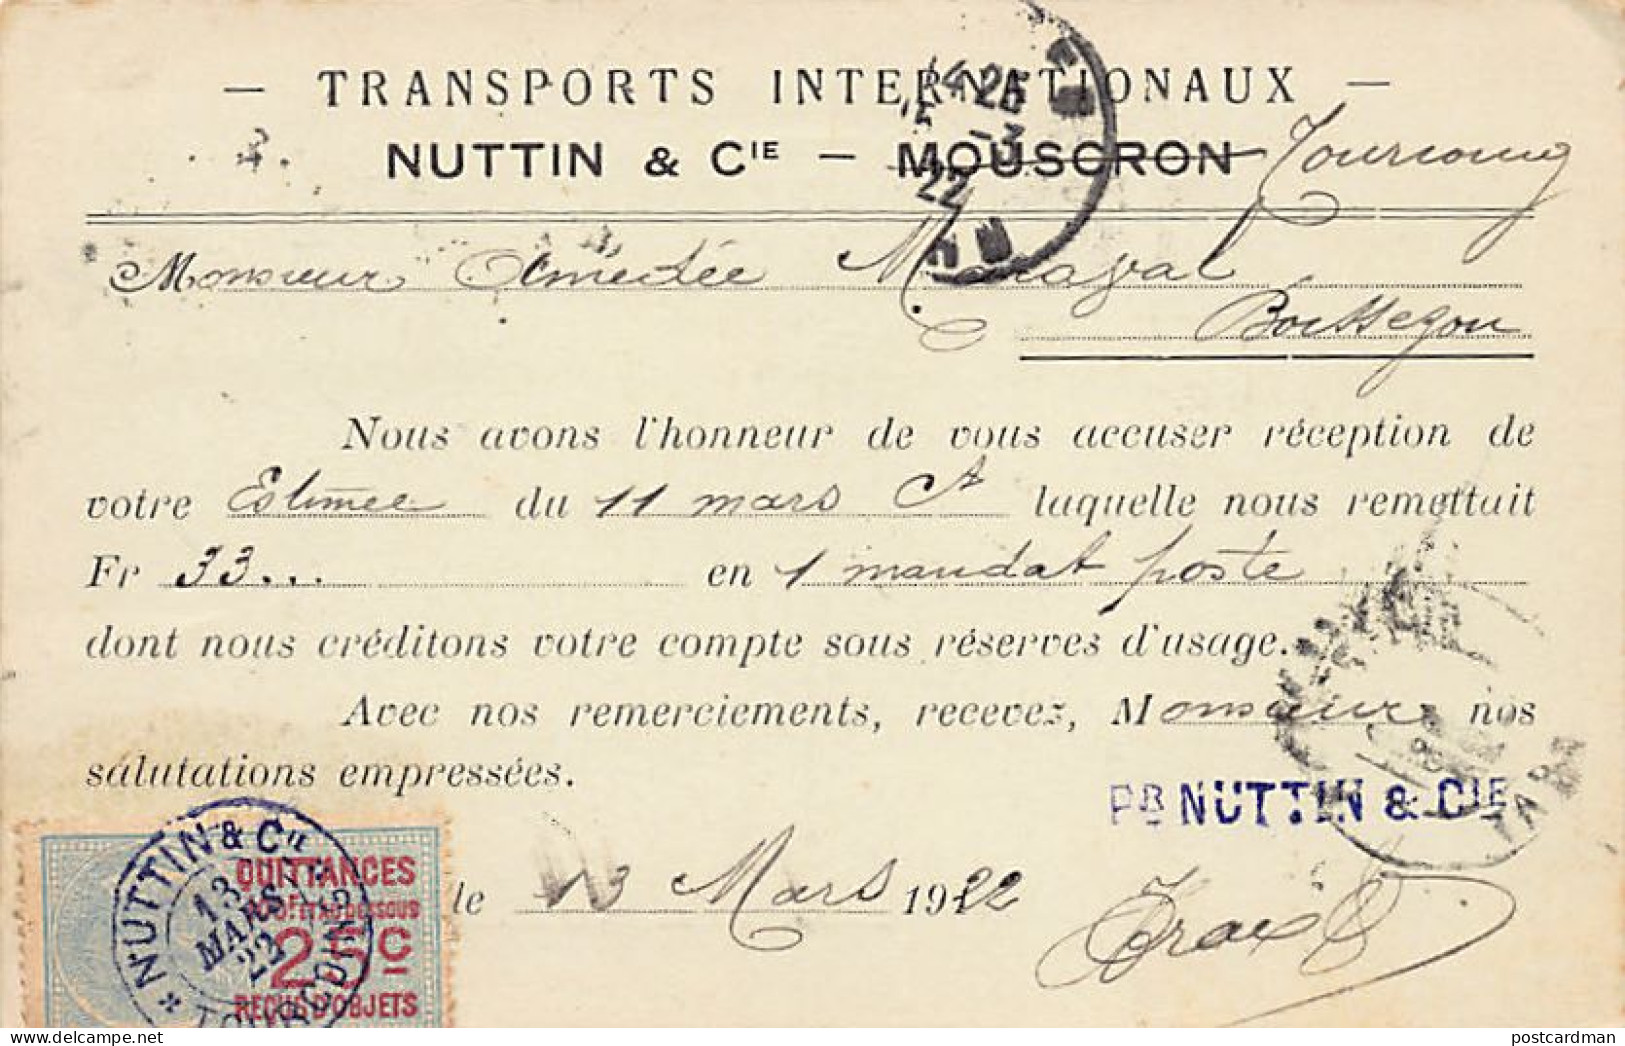 — TRANSPORTS INTERNATIONAUX —
NUTTIN & CIE — MOUSCRON Tourcoing
14 25
15 -3
22
Monsieur Amédée Maraval
Boissezon
Nous avons l'honneur de vous accuser réception de
votre Estimée du 11 mars Ct laquelle nous remettait
Fr 33... en 1 mandat poste
dont nous créditons votre compte sous réserves d'usage.
Avec nos remerciements, recevez, Monsieur nos
salutations empressées.
PR NUTTIN & CIE
TARN
le 13 Mars 1922
NUTTIN & Cie
13
MARS
22
* TOURCOING
QUITTANCES
100F ET AU DESSOUS
25c
REÇUS D'OBJETS
postcardman